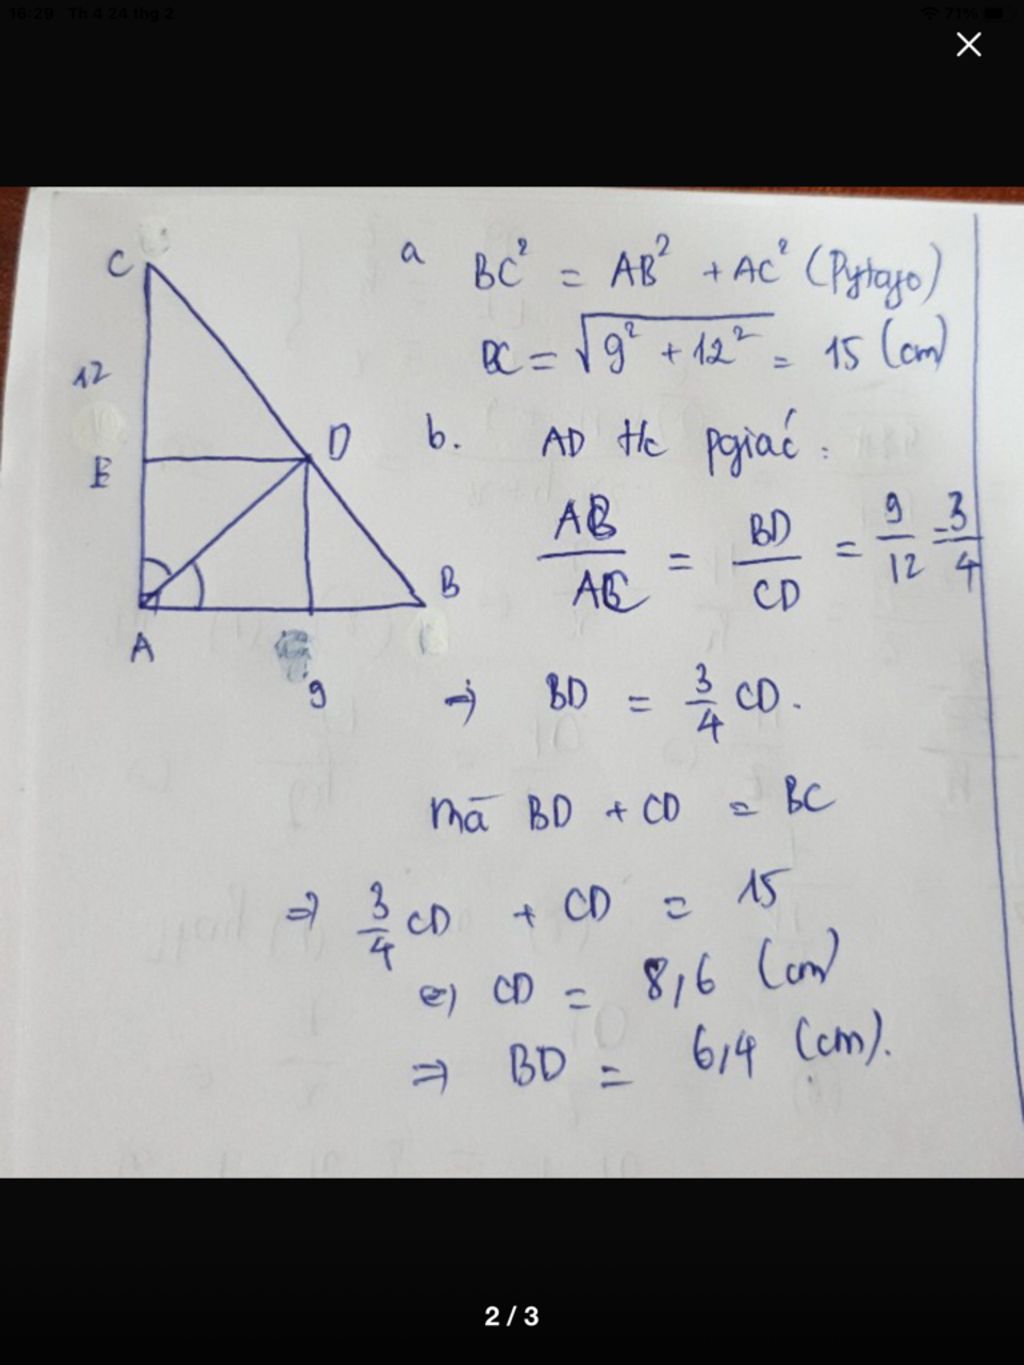 16:29 Th 4 24 thg 2
71%
C
12
E
D
B
A
9
a BC² = AB² + AC² (Pytago)
BC = √9² + 12² = 15 (cm)
b. AD t/c pgiác :
AB/AC = BD/CD = 9/12 = 3/4
⇒ BD = 3/4 CD.
mà BD + CD = BC
⇒ 3/4 CD + CD = 15
⇔ CD = 8,6 (cm)
⇒ BD = 6,4 (cm).
2 / 3